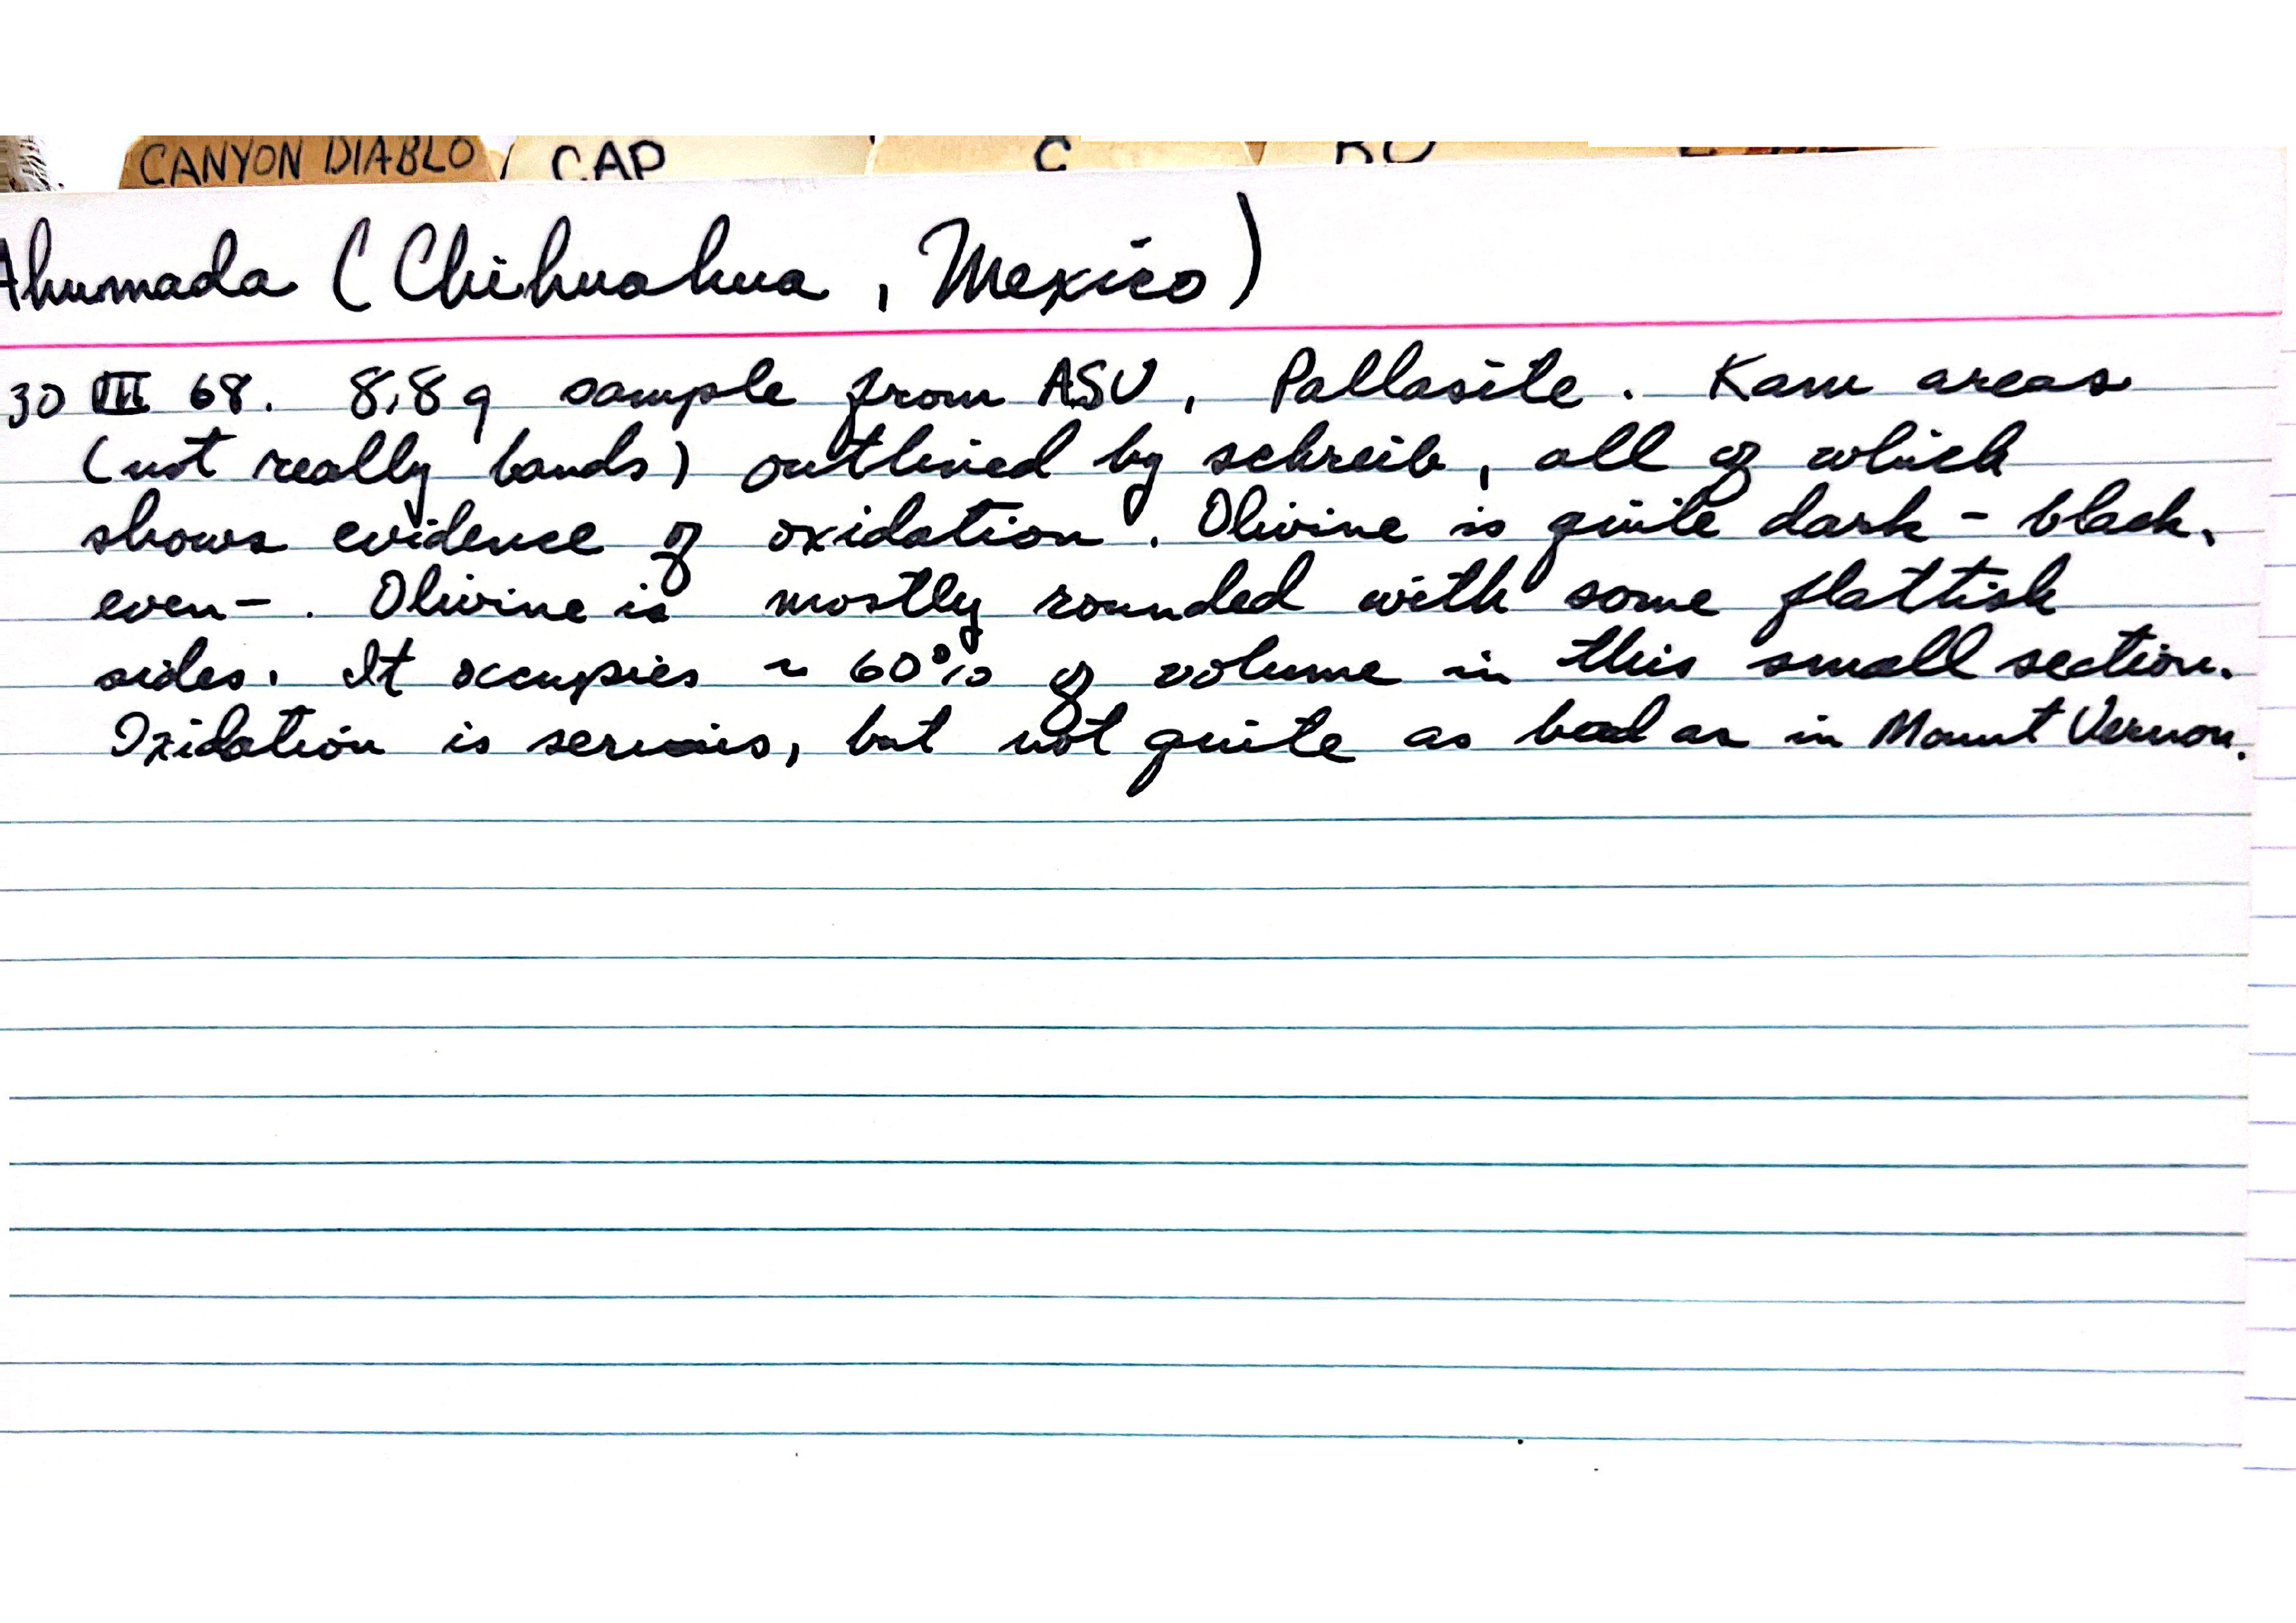 CANYON DIABLO CAP C
Ahumada (Chihuahua, Mexico)
30 III 68. 8.8 g sample from ASU, Pallasite. Kam areas
(not really bands) outlined by schreib, all of which
shows evidence of oxidation. Olivine is quite dark - black,
even-. Olivine is mostly rounded with some flattish
sides. It occupies ~ 60% of volume in this small section.
Oxidation is serious, but not quite as bad as in Mount Vernon.